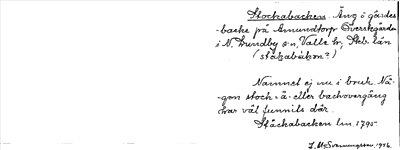 Stockabacken. Äng ö gärdes-
backe på Amundtorp Sverksgården
i N. Lundby s:n, Valle hr, Skb. län
(ståkabäkom?)
Namnet ej nu i bruk. Nå-
gon stock-å- eller backövergång
har väl funnits där.
Ståckabacken lm. 1795.
1936.